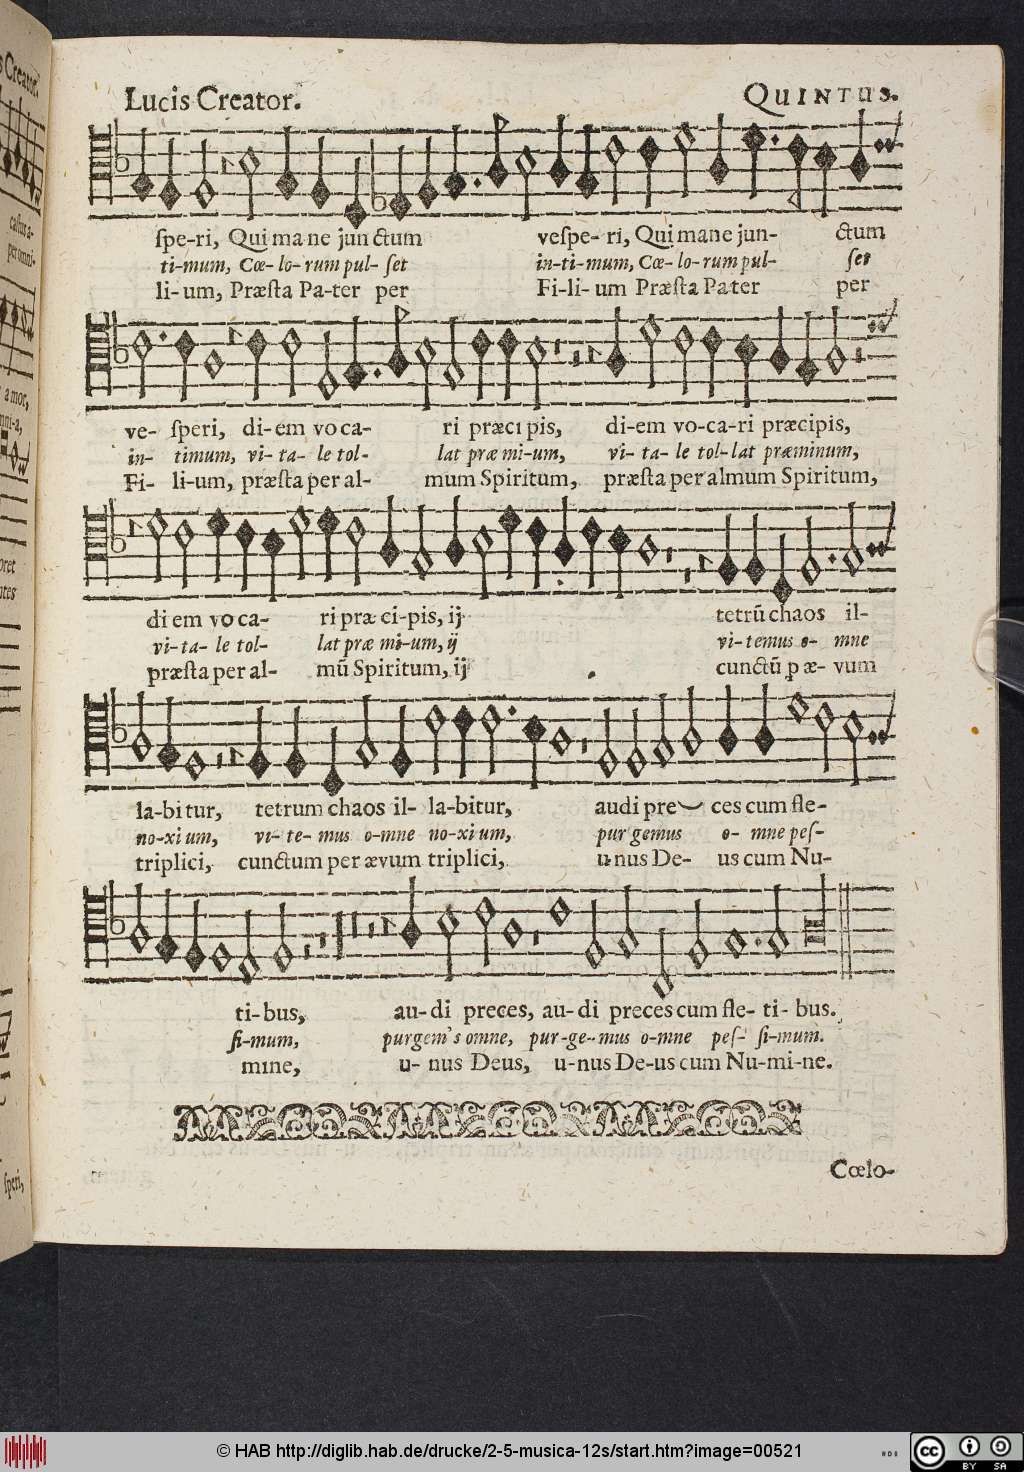 Lucis Creator.
QUINTUS.
ſpe-ri, Qui ma ne jun ctum veſpe- ri, Qui mane jun- ctum
ti-mum, Cœ- lo- rum pul- ſet in-ti-mum, Cœ- lo-rum pul- ſet
li- um, Præſta Pa-ter per Fi-li- um Præſta Pater per
ve- ſperi, di-em vo ca- ri præci pis, di-em vo-ca-ri præcipis,
in- timum, vi- ta- le tol- lat præ mi-um, vi- ta- le tol-lat præminum,
Fi- li-um, præſta per al- mum Spiritum, præſta per almum Spiritum,
di em vo ca- ri præ ci-pis, ij tetrū chaos il-
vi-ta- le tol- lat præ mi-um, ij vi-temus o- mne
præſta per al- mū Spiritum, ij cunctū ꝑ æ- vum
la-bi tur, tetrum chaos il- la-bitur, audi pre ces cum fle-
no-xi um, vi- te- mus o-mne no-xi um, pur gemus o- mne peſ-
triplici, cunctum per ævum triplici, unus De- us cum Nu-
ti-bus, au-di preces, au-di preces cum fle- ti- bus.
ſi-mum, purgem's omne, pur-ge-mus o-mne peſ- ſi-mum.
mine, u- nus Deus, u-nus De-us cum Nu-mi-ne.
Cœlo-
s Creator.
caſtur a-
per omni-
a moc,
mni-a,
ſperi,
© HAB http://diglib.hab.de/drucke/2-5-musica-12s/start.htm?image=00521
cc BY SA